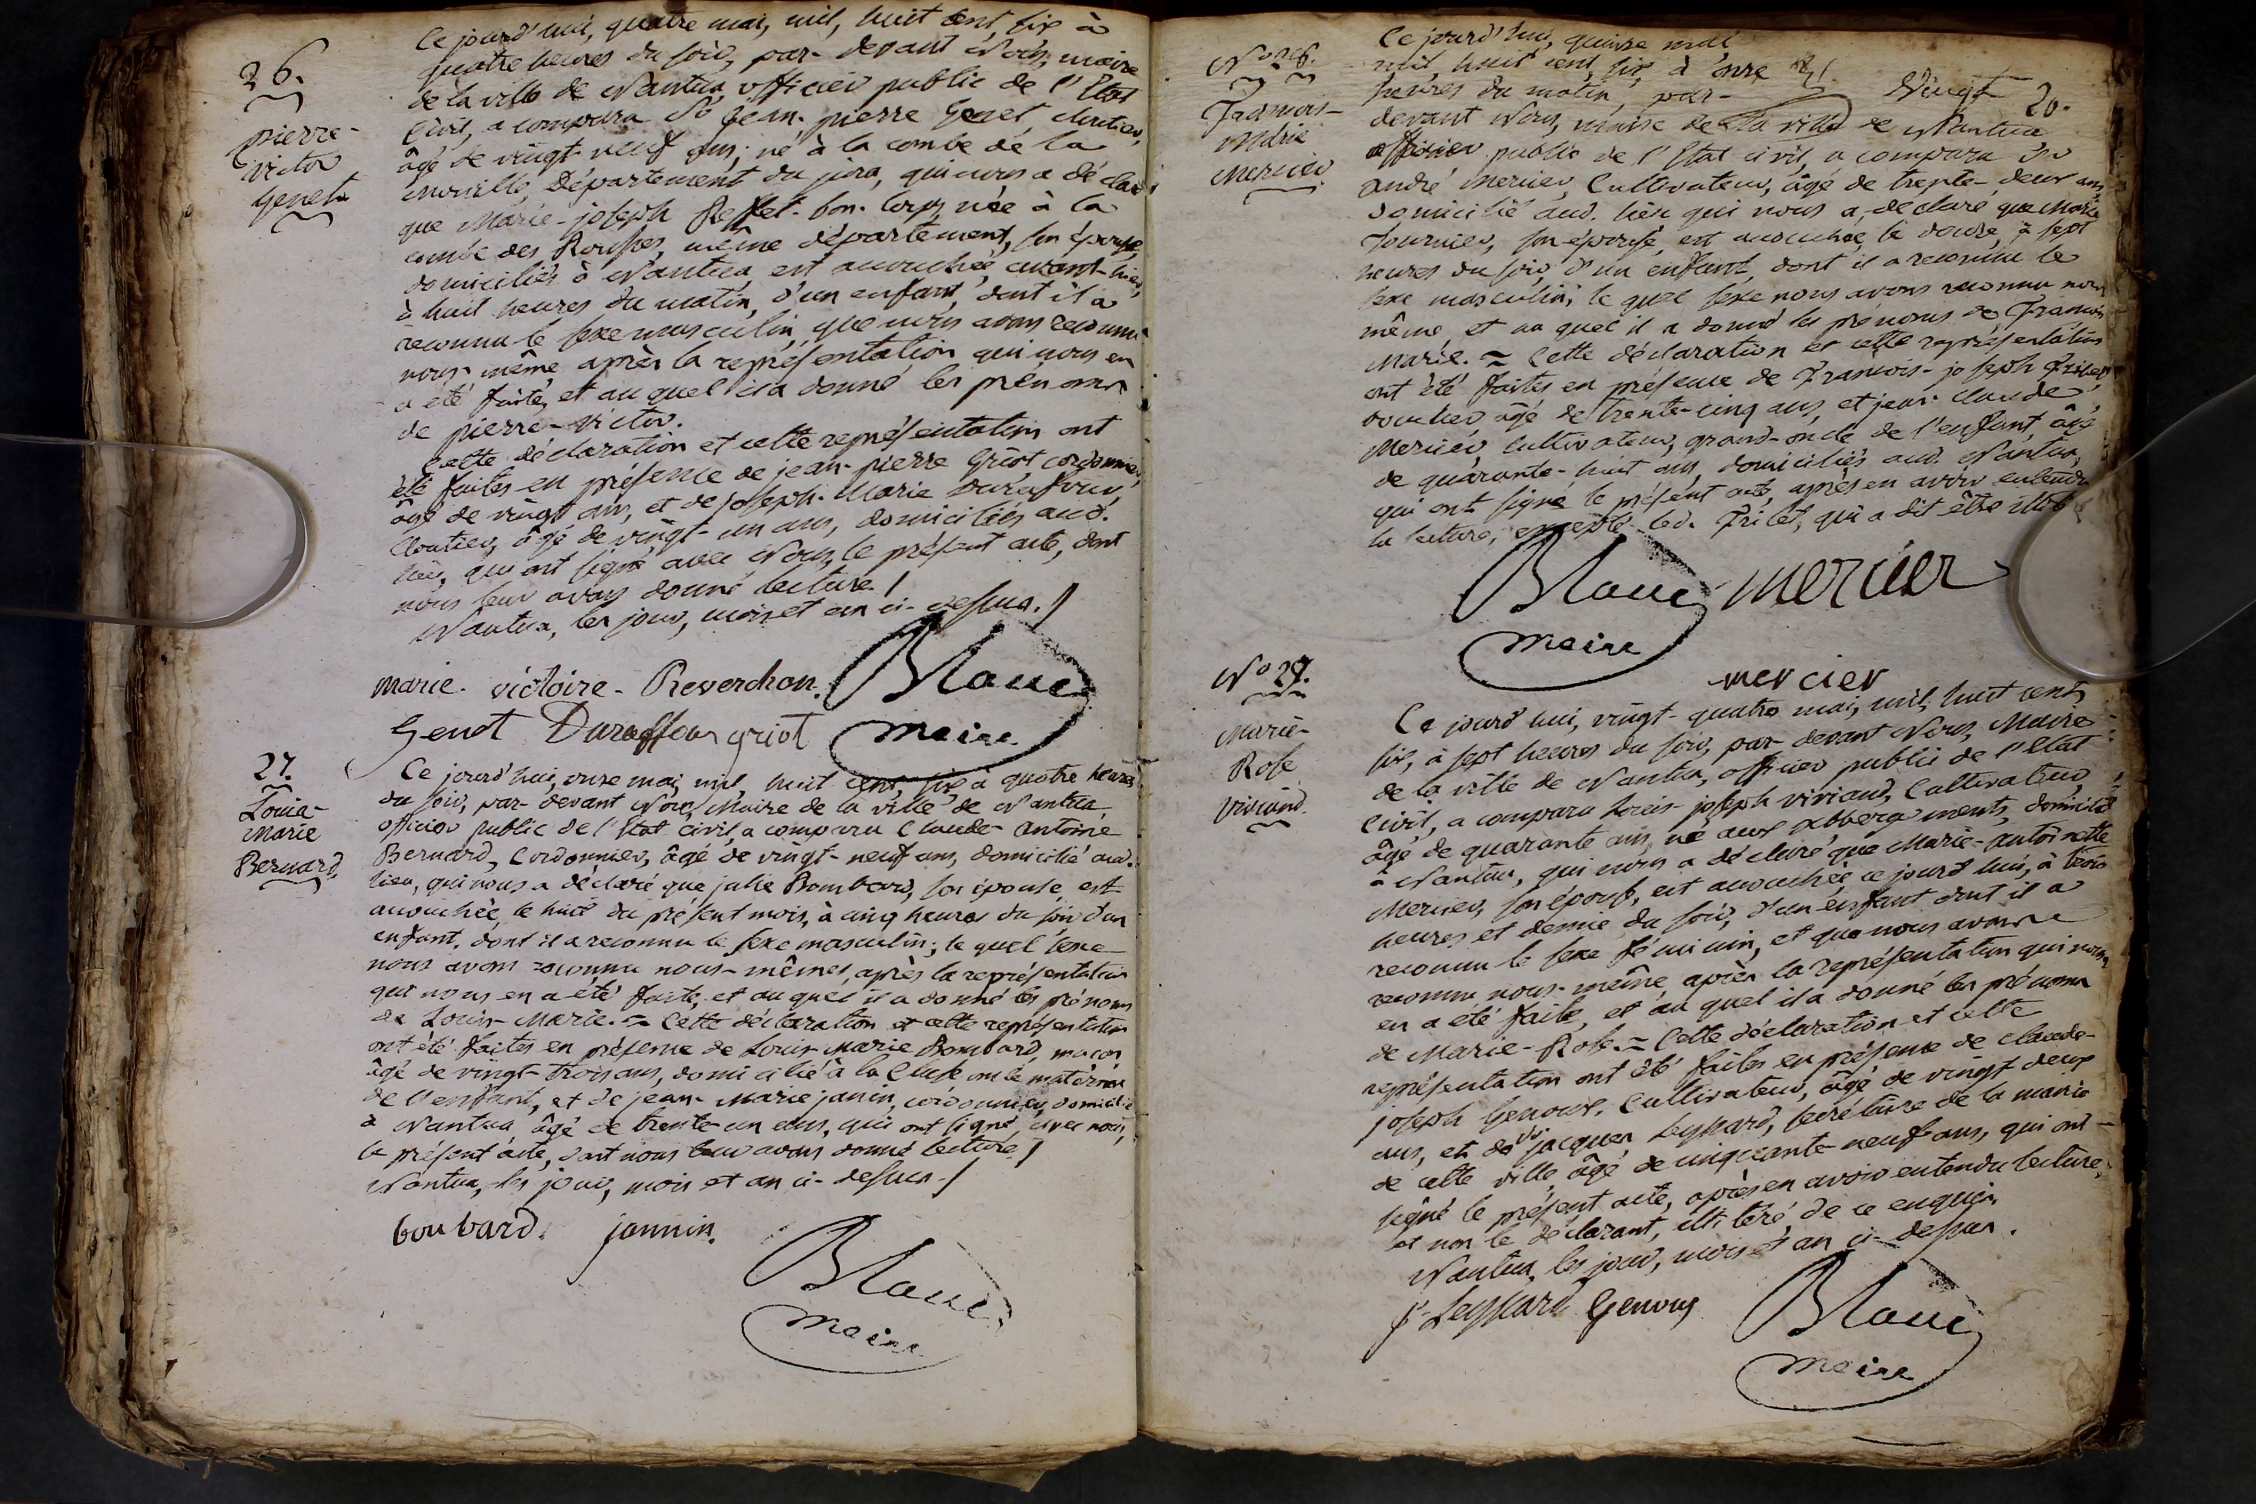 26.
pierre-
victor
Genet
Ce jourd'hui, quatre mai, mil, huit cent, six à
quatre heures du soir, par-devant Nous, maire
de la ville de Nantua officier public de l'Etat
Civil, a comparu Sr jean-pierre Genet, cloutier,
âgé de vingt-neuf ans, né à la combe de la
département du jura, qui nous a déclaré
que Marie-joseph née à la
combe des Rousses, même département, son épouse,
domiciliés à Nantua, est accouchée, avant-hier,
à huit heures du matin, d'un enfant, dont il a
reconnu le sexe masculin, que nous avons reconnu
nous-même après la représentation qui nous en
a été faite, et au quel il a donné les prénoms
de pierre-victor.
Cette déclaration et cette représentation ont
été faites en présence de jean-pierre Griot cordonnier,
âgé de vingt ans, et de joseph-Marie Duraffour,
Cloutier, âgé de vingt-un ans, domiciliés aud.
lieu, qui ont signé avec Nous, le présent acte, dont
nous leur avons donné lecture./
Nantua, les jour, mois et an ci-dessus./
marie-victoire-Reverchon. Blanc
Genet Duraffour griot maire
27.
Louis-
Marie
Bernard.
Ce jourd'hui, onze mai, mil, huit cent, six à quatre heures
du soir, par-devant Nous, Maire de la ville de Nantua
officier public de l'Etat civil, a comparu Claude-Antoine
Bernard, Cordonnier, âgé de vingt-neuf ans, domicilié aud.
lieu, qui nous a déclaré que julie Bombard, son épouse, est
accouchée, le huit du présent mois, à cinq heures du soir d'un
enfant, dont il a reconnu le sexe masculin; le quel sexe
nous avons reconnu nous-mêmes, après la représentation
qui nous en a été faite, et au quel il a donné les prénoms
de Louis-Marie. = Cette déclaration et cette représentation
ont été faites en présence de Louis-Marie Bombard, maçon
âgé de vingt-trois ans, domicilié à la Cluse oncle maternel
de l'enfant, et de jean-Marie janin, cordonnier, domicilié
à Nantua âgé de trente-un ans, qui ont signé, avec nous,
le présent acte, dont nous leur avons donné lecture./
Nantua, les jour, mois et an ci-dessus./
boubard. jannin.
Blanc
maire
Vingt 20.
No 28.
François-
Marie
Mercier.
Ce jourd'hui, quinze mai
mil, huit cent, six, à onze
heures du matin, par-
devant Nous, maire de la ville de Nantua
officier public de l'Etat civil, a comparu
andré Mercier, Cultivateur, âgé de trente-deux ans
domicilié aud. lieu qui nous a déclaré que Marie
Tournier, son épouse, est accouchée, le douze, à sept
heures du soir, d'un enfant, dont il a reconnu le
sexe masculin; le quel sexe nous avons reconnu nous
même, et au quel il a donné les prénoms de François
Marie. = Cette déclaration et cette représentation
ont été faites en présence de François-joseph Frilet,
âgé de trente-cinq ans, et jean-claude
Mercier, Cultivateur, grand-oncle de l'enfant, âgé
de quarante-huit ans, domiciliés aud. Nantua,
qui ont signé le présent acte, après en avoir entendu
la lecture, excepté led. Frilet, qui a dit être
Blanc mercier
maire
mercier
No 29.
Marie-
Rose
Viviand.
Ce jourd'hui, vingt-quatre mai, mil, huit cent,
six, à sept heures du soir, par-devant Nous, Maire
de la ville de Nantua, officier public de l'Etat
Civil, a comparu joseph viviand, Cultivateur,
âgé de quarante ans, né aux abbergements, domicilié
à Nantua, qui nous a déclaré que Marie-antoinette
Mercier, son épouse, est accouchée, ce jourd'hui, à trois
heures et demie du soir, d'un enfant dont il a
reconnu le sexe féminin, et que nous avons
reconnu nous-même, après la représentation qui nous
en a été faite, et au quel il a donné les prénoms
de Marie-Rose. = Cette déclaration et cette
représentation ont été faites en présence de claude-
joseph Genoux, Cultivateur, âgé de vingt-deux
ans, et de Sr jacques Leyssard, secrétaire de la mairie
de cette ville, âgé de cinquante-neuf ans, qui ont
signé le présent acte, après en avoir entendu lecture,
et non le déclarant, illitéré, de ce enquis.
Nantua, les jour, mois et an ci-dessus.
Leyssard Genoux Blanc
maire